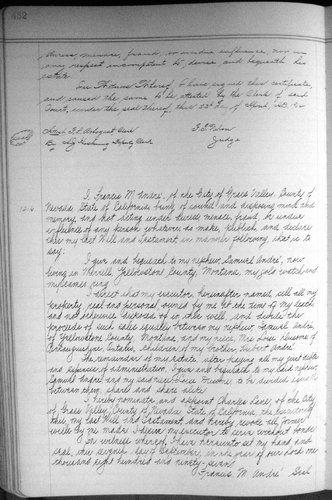 452
duress menace, fraud, or undue influence, nor in
any respect incompetent to devise and bequeath his
estate.
In Witness Whereof, I have signed this certificate,
and caused the same to be attested by the Clerk of said
Court, under the seal thereof, this 23rd day of April, A.D.
Attest
By Deputy Clerk
Judge
I, Francis M. André, of the City of Grass Valley, County of
Nevada State of California being of sound and disposing mind and
memory, and not acting under duress menace, fraud, or undue
influence of any person whatever do make, publish, and declare
this my last Will and Testament in manner following, that is to
say:
I give and bequeath to my nephew, Samuel André, now
living in Yellowstone County, Montana, my gold watch and
my ring
I direct that my executor, hereinafter named, sell all my
property, real and personal owned by me at the time of my death
and not disposed of in this will, and divide the
proceeds of such sales equally between my nephew Samuel André,
of Yellowstone County Montana, and my niece, Mrs.
children of my brother Robert André
The remainder of my estate after paying all my just debts
and expenses of administration, I give and bequeath to my said nephew
Samuel André and my said niece to be divided equally
between them, share and share alike.
I hereby nominate and appoint Charles of the City
of Grass Valley, County of Nevada State of California, the executor of
this, my last Will and Testament and hereby revoke all former
wills by me made. I desire my executor to serve without bonds
In witness whereof, I have hereunto set my hand and
seal, this day of September, in the year of our Lord one
thousand eight hundred and ninety-seven
Francis M. André Seal